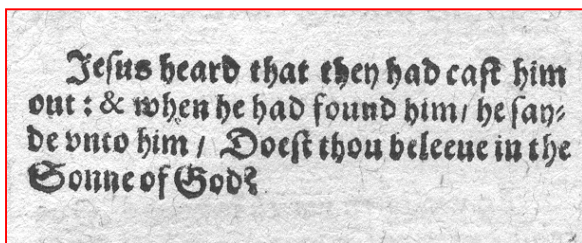 Jesus heard that they had cast him
out : & when he had found him / he say-
de vnto him / Doest thou beleeue in the
Sonne of God?